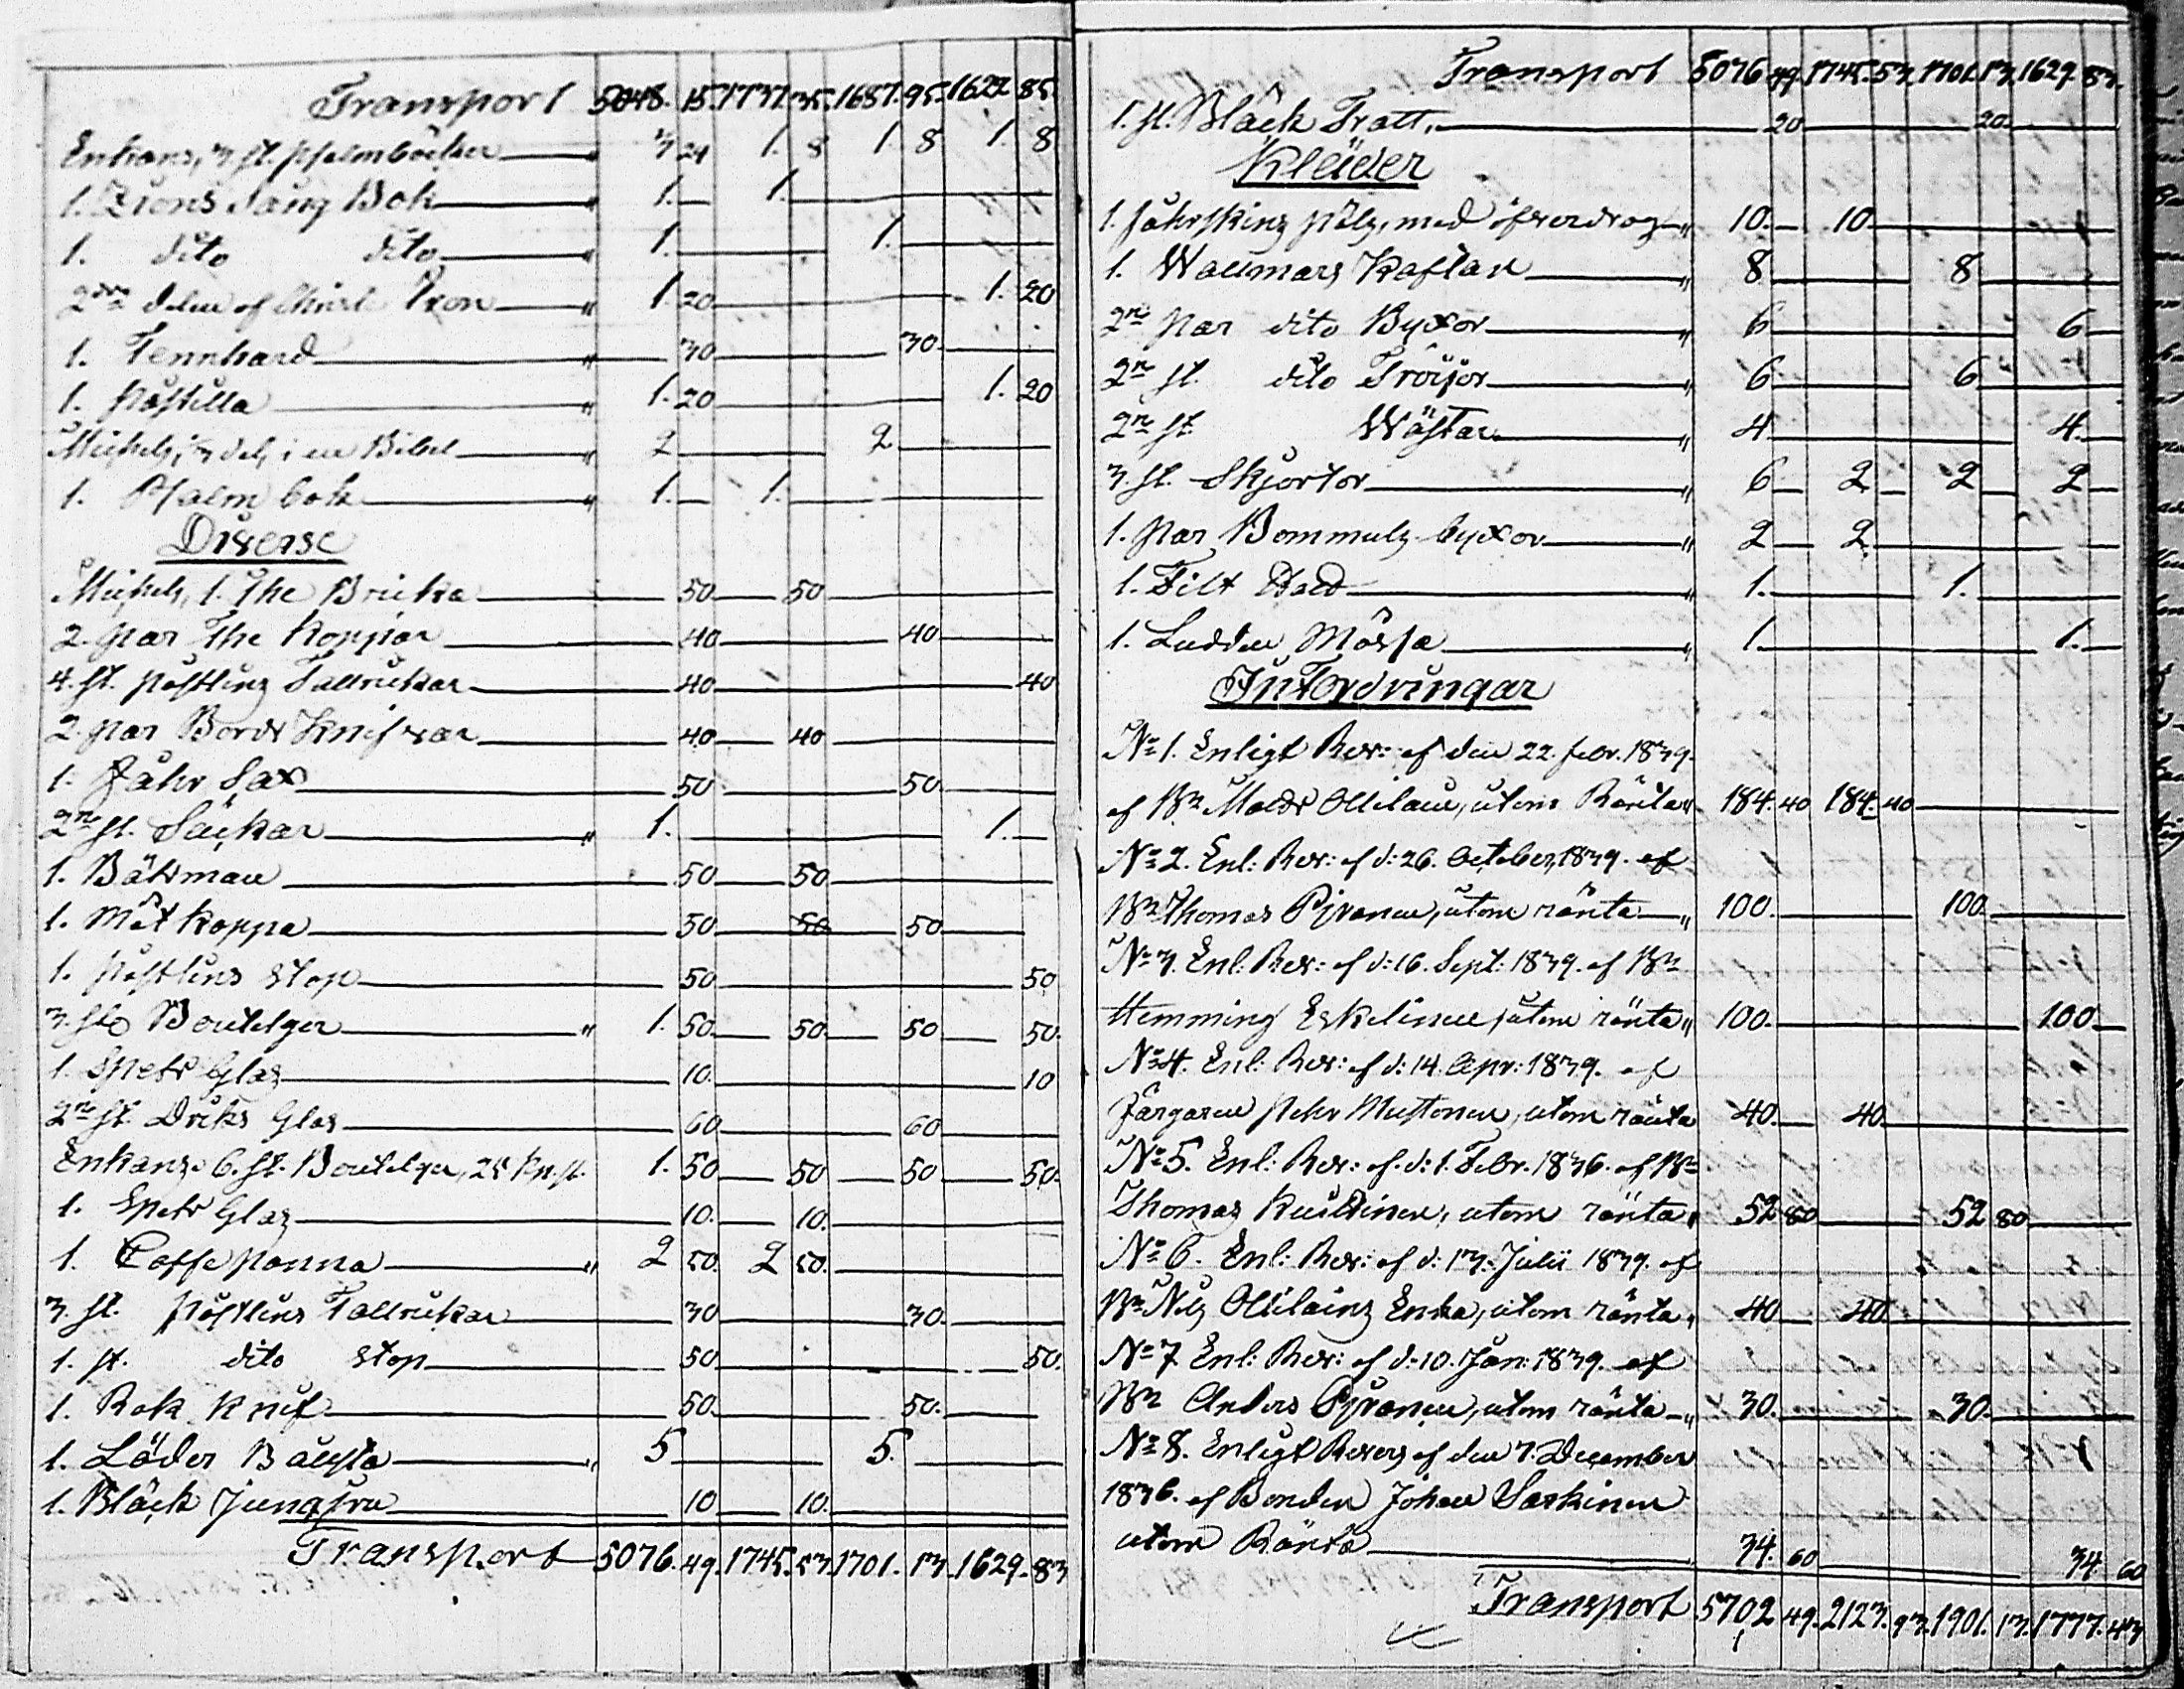 Transport 5048. 15. 1737. 35. 1687. 95. 1622 85
Enkans, 3 st. psalmböcker " 3 24 1. 8 1. 8 1. 8
1. Zions Sång Bok " 1. 1.
1. dito dito " 1. 1.
2dra delen af Christi " 1. 20 1. 20
1. Tennhard " 30 30
1. Postilla " 1. 20 1. 20
Michels, 1/3 del, i en Bibel " 2 2
1. Psalm bok " 1. 1.
Diverse
Michels, 1. The Bricka 50 50
2. par The Koppar 40 40
4. st. postlins Tallrickar 40 40
2. par Bords Knifvar 40 40
1. Fåhr Sax 50 50
2ne st. Säckar " 1. 1.
1. Båtsman 50 50
1. Måt Kappa 50 50 50
1. postlins stop 50 50
3. st. Bouteljer " 1. 50 50 50 50
1. Spets Glas 10 10
2ne st. Dricks Glas 60 60
Enkans 6. st. Bouteljer, 25 Kp. st. 1. 50 50 50 50
1. Spets Glas 10 10
1. Caffe panna " 2 50 2 50
3. st. postlins Tallrickar 30 30
1. st. dito stop 50 50
1. Rak knif 50 50
1. Läder " 5 5
1. Bläck Jungfru 10 10
Transport 5076. 49. 1745. 53. 1701. 13. 1629. 83
Transport 5076 49. 1745. 53. 1701. 13. 1629. 83.
1. st. Bläck Tratt, 20 20
Kläder
1. fåhrskins päls, med öfverdrag " 10. 10
1. Wallmars Kaftan " 8 8
2ne par dito Byxor " 6 6
2ne st. dito Tröijor " 6 6
2ne st. Wästar " 4 4
3. st. Skjortor " 6 2 2 2
1. par Bommuls byxor " 2 2
1. Filt " 1. 1.
1. Ludden Mössa " 1. 1.
Infordringar
No 1. Enligt Rev: af den 22. febr. 1839.
af Bn Mats Ollilain, utom Ränta " 184. 40 184. 40
No 2. Enl: Rev: af d: 26. October, 1839. af
Bn Thomas Pjronen, utom ränta " 100. 100.
No 3. Enl: Rev: af d: 16. Sept: 1839. af Bn
Hemming Eskelinen, utom ränta " 100. 100
No 4. Enl: Rev: af d: 14. Apr: 1839. af
Färgaren Pehr Mustonen, utom ränta 40 40
No 5. Enl: Rev: af d: 1. Febr. 1836. af Bn
Thomas utom ränta " 52 80 52 80
No 6. Enl: Rev: af d: 13. Julii 1839. af
Bn Nils Ollilains Enka, utom ränta " 40 40
No 7 Enl: Rev: af d: 10. Jan: 1839. af
Bn Anders Pjronen, utom ränta " 30. 30
No 8. Enligt Revers af den 7. December
1836. af Bonden Johan Sarkinen
utom Ränta 34. 60 34 60
Transport 5702 49. 2123. 93. 1901. 13. 1777. 43